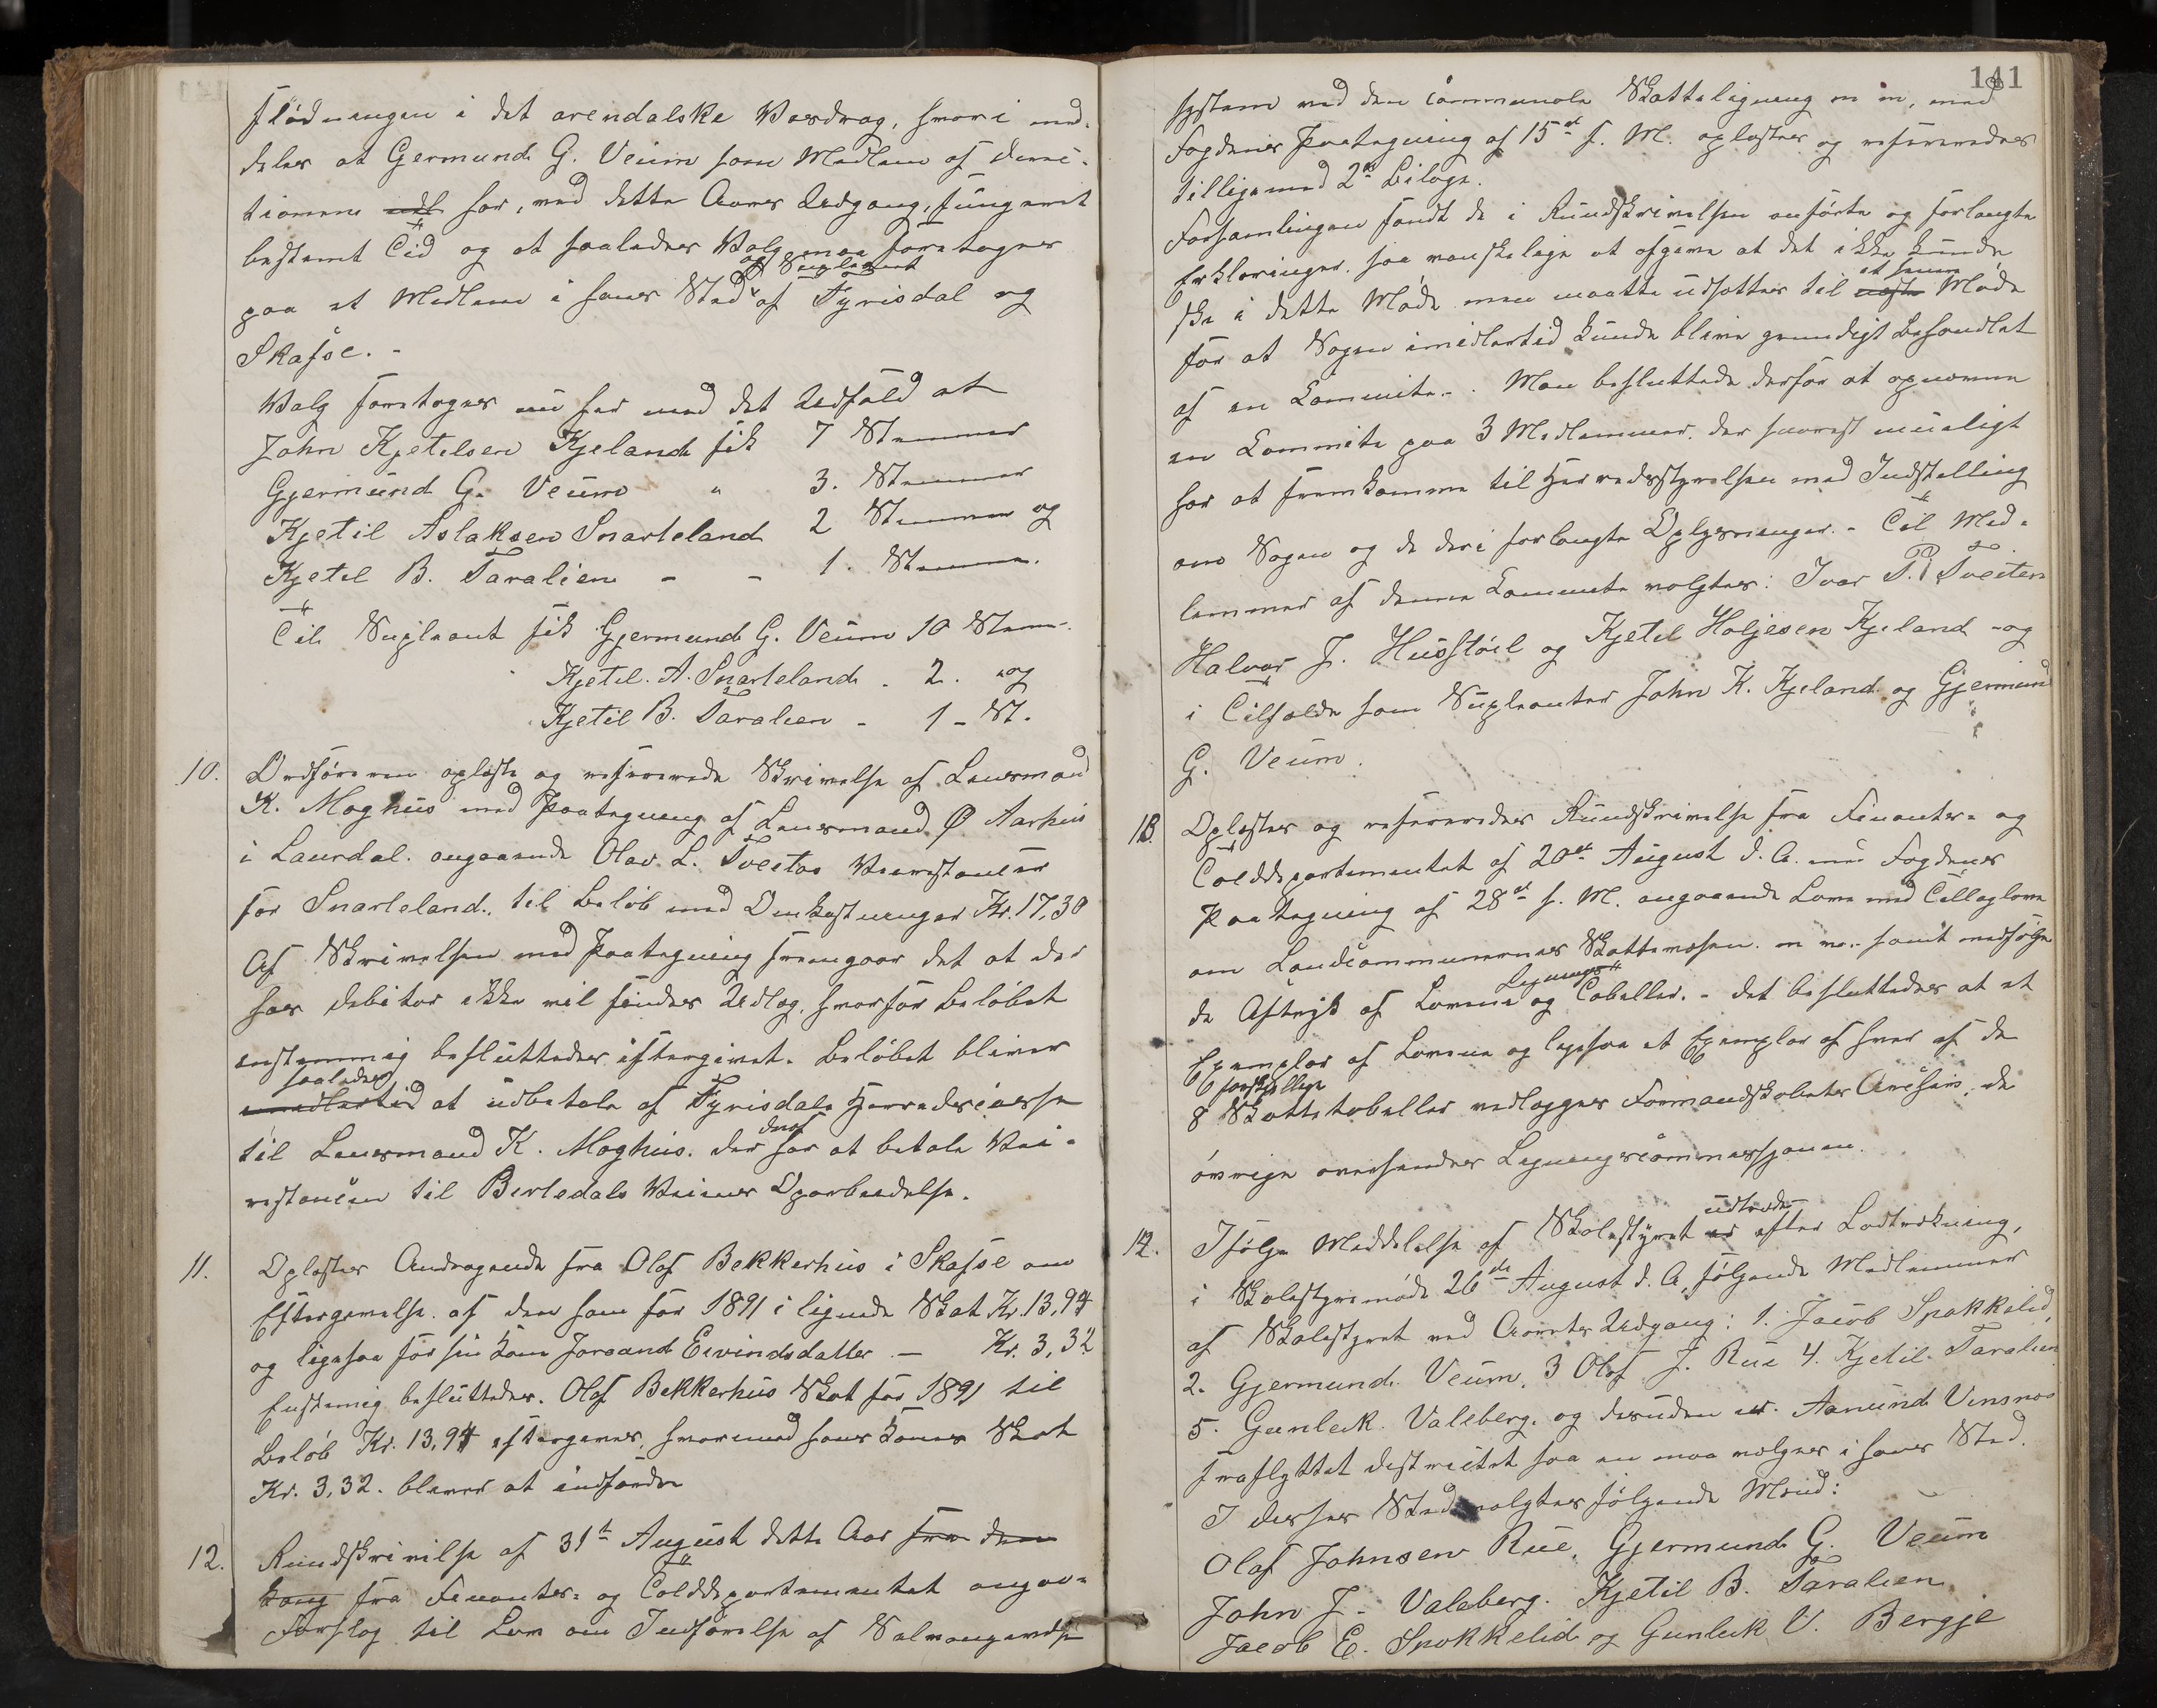 flødningen i det arendalske Vasdrag, hvori med-
deles at Germund G. Veum som Medlem af Derec-
tionen har, ved dette Aares Udgang, fungeret
bestemt Tid og at saaledes Valg maa foretages
paa et Medlem i hans Sted og Supleant af Fyrisdal og
Skafse. -
Valg foretoges nu her med det Udfald at
John Kjetelsen Kjeland fik 7 Stemmer
Gjermund G. Veum " 3. Stemmer
Kjetil Aslaksen Snarteland 2 Stemmer og
Kjetel B. Taralien - - 1. Stemme.
Til Supleant fik Gjermund G. Veum 10 Stem-
Kjetel. A. Snarteland. - 2. " og
Kjetil B. Taralien - 1 - St.
10. Ordføreren oplæste og refererede Skrivelse af Lensmand
K. Moghus med Paategning af Lensmand Ø Aarhus
i Laurdal. angaaende Olav L. Tveitas Veirestancer
for Snarteland., til Beløb med Omkostninger Kr. 17,30
Af Skrivelsen med Paategning fremgaar det at der
hos debitor ikke vil findes Udlæg, hvorfor Beløbet
enstemmig besluttedes eftergivet. Beløbet bliver
saaledes
imidlertid at udbetale af Fyrisdals Herredscasse
til Lensmand K. Moghus. der deraf har at betale Vei-
restancen til Berledals Veiens Oparbeidelse.
11. Oplæstes Andragende fra Olaf Bekkerhus i Skafse om
Eftergivelse af den ham for 1891 i lignede Skat Kr. 13,94
og ligesaa for sin Kone Joraand Eivindsdatter - Kr. 3,32
Enstemig besluttedes. Olaf Bekkerhus Skat for 1891 til
Beløb Kr. 13,94 eftergives, hvormod hans Kones Skat
Kr. 3,32. bliver at indfordre
12. Rundskrivelse af 31te August dette Aar fra den
fra Finantes- og Tolddepartementet angav-
Forslag til Lov om Indførelse af Selvangivelses
141
system ved den communale Skatteligning m m, med
Fogdens Paategning af 15de f. M. oplæstes og refereredes
tilligemed 2de Bilage.
Forsamlingen fandt de i Rundskrivelsen anførte og forlangte
Erklæringer saa vanskelige at afgive at det ikke kunde
ske i dette Møde men maatte udsættes til et senere næste Møde
for at Sagen imidlertid kunde blive grundigt behandlet
af en Commite. - Man besluttede derfor at opnævne
en Commite paa 3 Medlemmer. der snarest mueligt
har at fremkomme til Herredsstyrelsen med Indstilling
om Sagen og de deri forlangte Oplysninger. - Til Med-
lemmer af denne Commite valgtes: Ivar T. Tveiten
Halvor J. Husstøil og Kjetel Holjesen Kjeland - og
i Tilfælde som Supleanter John K. Kjeland og Gjermund
G. Veum.
13. Oplæstes og refereredes Rundskrivelse fra Finantes- og
Tolddepartementet af 20de August d. A. med Fogdens
Paategning af 28de f. M. angaaende Love med Tillæglove
om Landcommunernes Skattevæsen m m. - samt medfølgen
de Aftryk af Lovene og Lignings Tabeller. - det besluttedes at et
Exemplar af Lovene og ligesaa et Exemplar af hver af de
forskjellige
8 Skattetabeller vedlægges Formandskabets Archiv, de
øvrige oversendes Ligningscommissjonen.
14. Ifølge Meddelelse af Skolestyret udtræder efter Lodtrekning,
i Skolestyremøde 26de August d. A, følgende Medlemmer
af Skolestyret ved Aarets Udgang: 1. Jacob Spokkelid,
2. Gjermund Veum, 3 Olaf J. Rue 4. Kjetil Taralien
5. Gunleik Valeberg. og desuden er Aanund Vinsnes
fraflyttet districtet saa en maa velges i hans Sted.
I disses Sted valgtes følgende Mænd:
Olaf Johnsen Rue, Gjermund G. Veum
John J. Valeberg. Kjetil B. Taralien
Jacob E. Spokkelid og Gunleik V. Bergje